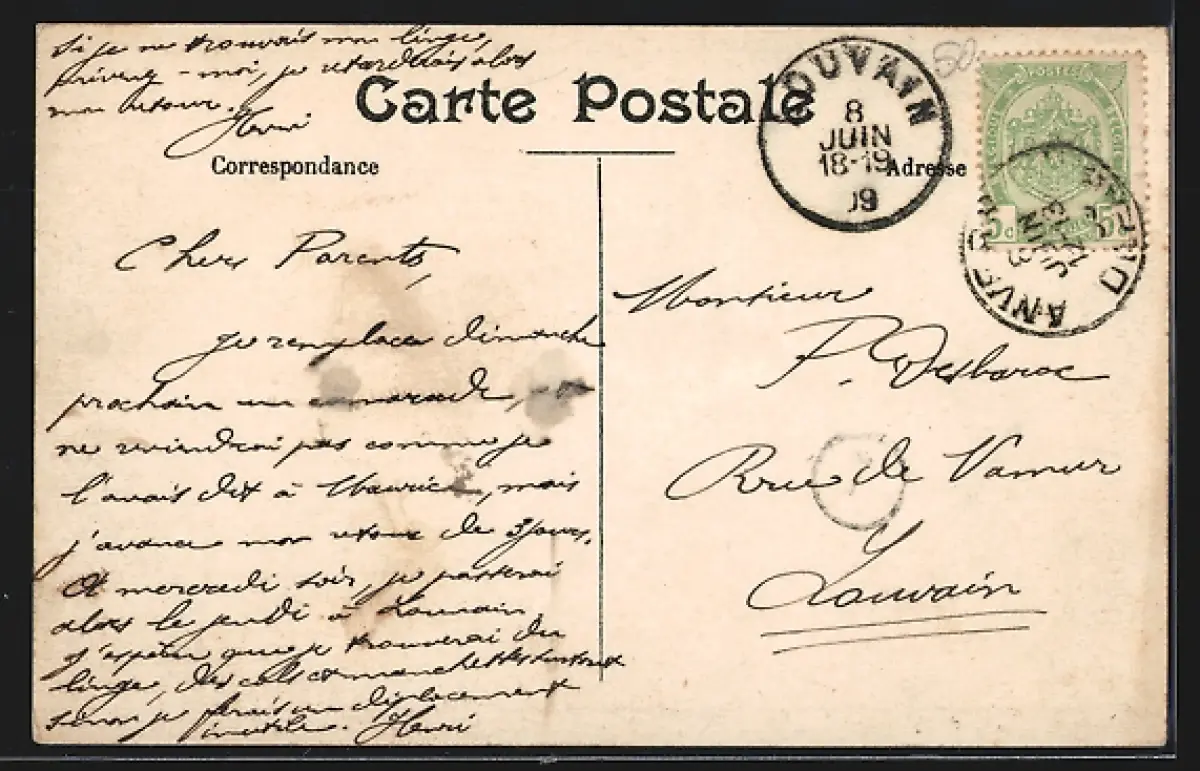 Si je ne trouvais mon linge,
prévenez-moi, je retarderais alors
mon retour.
Henri
Carte Postale
Correspondance
Adresse
LOUVAIN
8
JUIN
18-19
09
50
POSTES
5c
5c
ANVERS
JUIN
Chers Parents,
Je remplace dimanche
prochain un camarade,
ne reviendrai pas comme je
l'avais dit à Maurice, mais
j'avance mon retour de 3 jours.
A mercredi soir, je passerai
alors le jeudi à Louvain
J'espère que je trouverai du
linge, des cols et manchettes surtout
sinon je ferais un déplacement
inutile. Henri
Monsieur
P.
Rue de Namur
4
Louvain